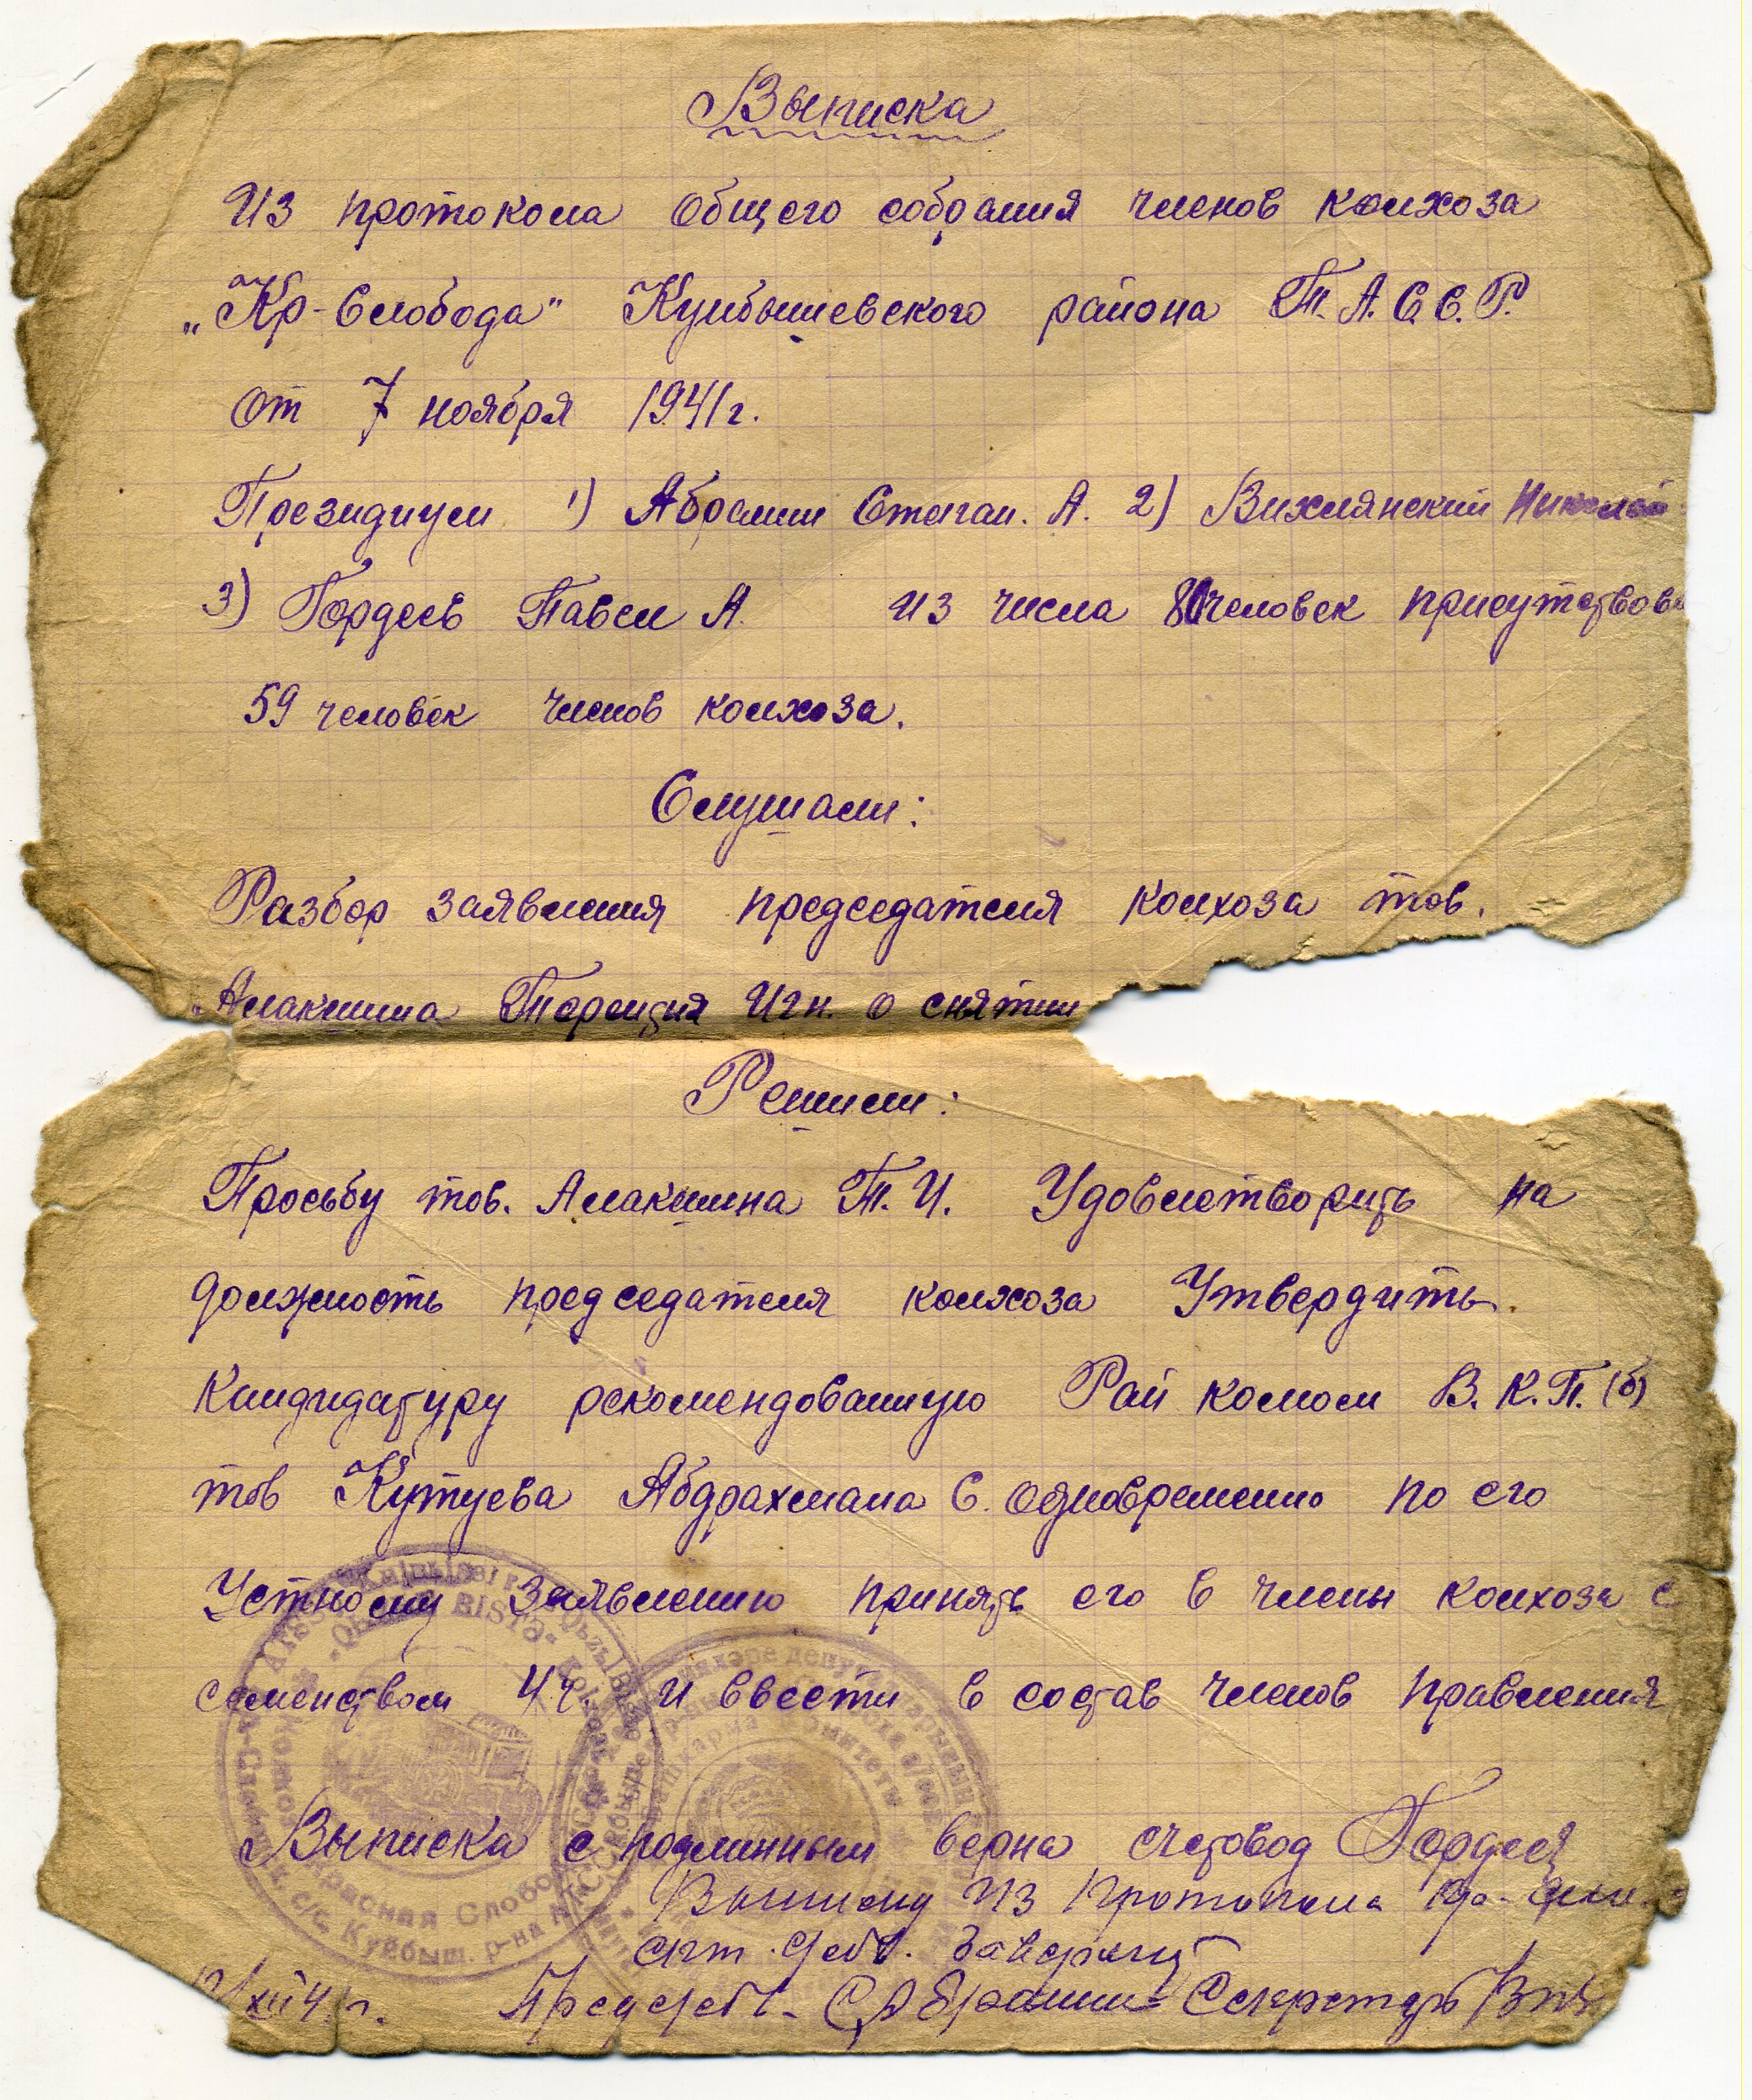 Выписка
Из протокола общего собрания членов колхоза
„Кр-Слобода" Куйбышевского района Т.А.С.С.Р.
от 7 ноября 1941г.
Президиум 1) Абрамин Степан. А. 2) Вихлянский Николай
3) Гордеев Павел А. из числа 80 человек присутствова
59 человек членов колхоза.
Слушали:
Разбор заявления председателя колхоза тов.
Алакшина Терентия Игн. о снятии
Решили:
Просьбу тов. Алакшина Т.И. Удовлетворить на
должность председателя колхоза Утвердить.
кандидатуру рекомендованную Рай комом В.К.П.(б)
тов Кутуева Абдрахмана С. одновременно по его
Устному Заявлению принять его в члены колхоза с
семейством 4ч. и ввести в состав членов правления
Выписка с подлинным верна счетовод Гордеев
Выписку из протокола
заверяем
Секретарь
Красная Слобо
с/с, Куйбыш. р-на